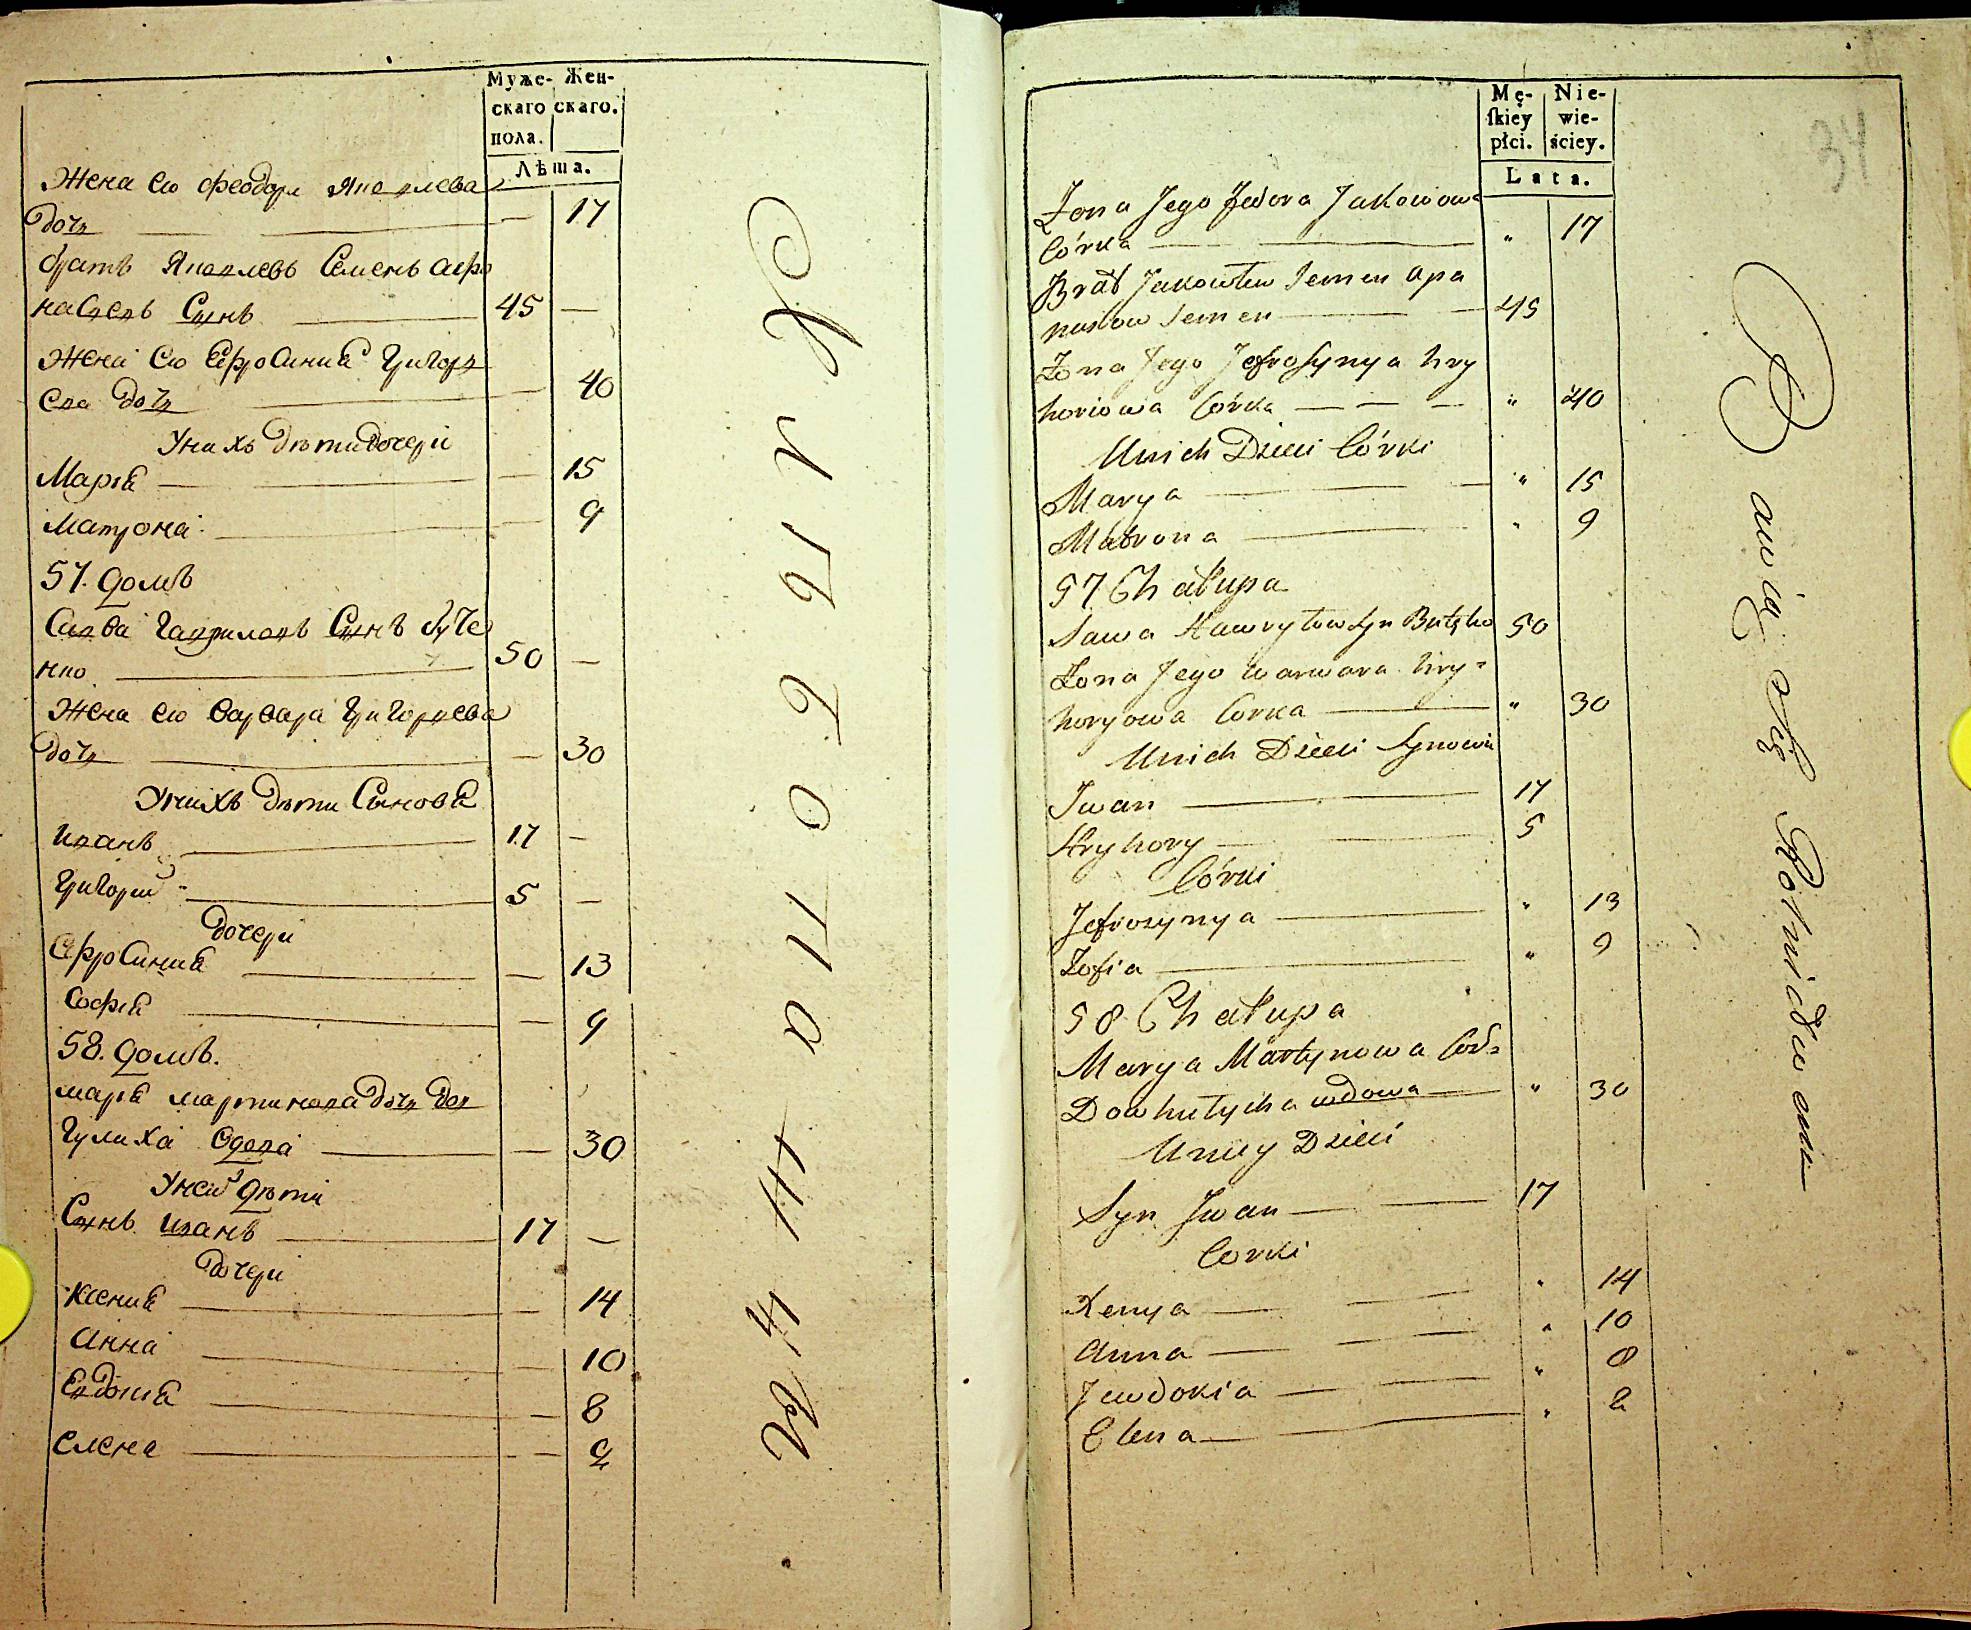 Муже-
Жен-
скаго
скаго.
пола.
Лѣта.
Жена его Феодора Яковлева
дочъ — 17
братъ Яковлевъ Семенъ Афа
насіевъ Сынъ 45 —
Жена его Ефросинія Григорь
ева дочъ — 40
У нихъ дѣти дочери
Марія — 15
Матрона — 9
57. домъ
Савва Гавриловъ Сынъ
нко 50 —
Жена его Варвара Григорьева
дочъ — 30
У нихъ дѣти Сыновя
Иванъ 17 —
Григорій 5 —
дочери
Ефросинія — 13
Софія — 9
58. домъ.
марія мартинова дочъ дов
гулиха вдова — 30
У ней дѣти
Сынъ Иванъ 17 —
дочери
Ксенія — 14
Анна — 10
Евдокія — 8
Елена — 2
Живутъ
Mę-
Nie-
skiey
wie-
płci.
ściey.
Lata.
34
Żona Jego Fedora Jakowowa
Córka " 17
Brat Jakowlew Semen Apa
nasiow Semen 45
Żona Jego Jefrosynya Hry
horiowa Córka " 40
Unich Dzieci Córki
Marya " 15
Matrona " 9
57 Chałupa
Sawa Hawryłow Syn 50
Żona Jego Warwara Hry=
horyowa Corka " 30
Unich Dzieci Synowie
Jwan 17
Hryhory 5
Córki
Jefrosynya " 13
Zofia " 9
58 Chałupa
Marya Martynowa Cor=
Dowhulycha wdowa " 30
Uniey Dzieci
Syn Jwan 17
Corki
Xenya " 14
Anna " 10
Jewdokia " 8
Elena " 2
Bawią się